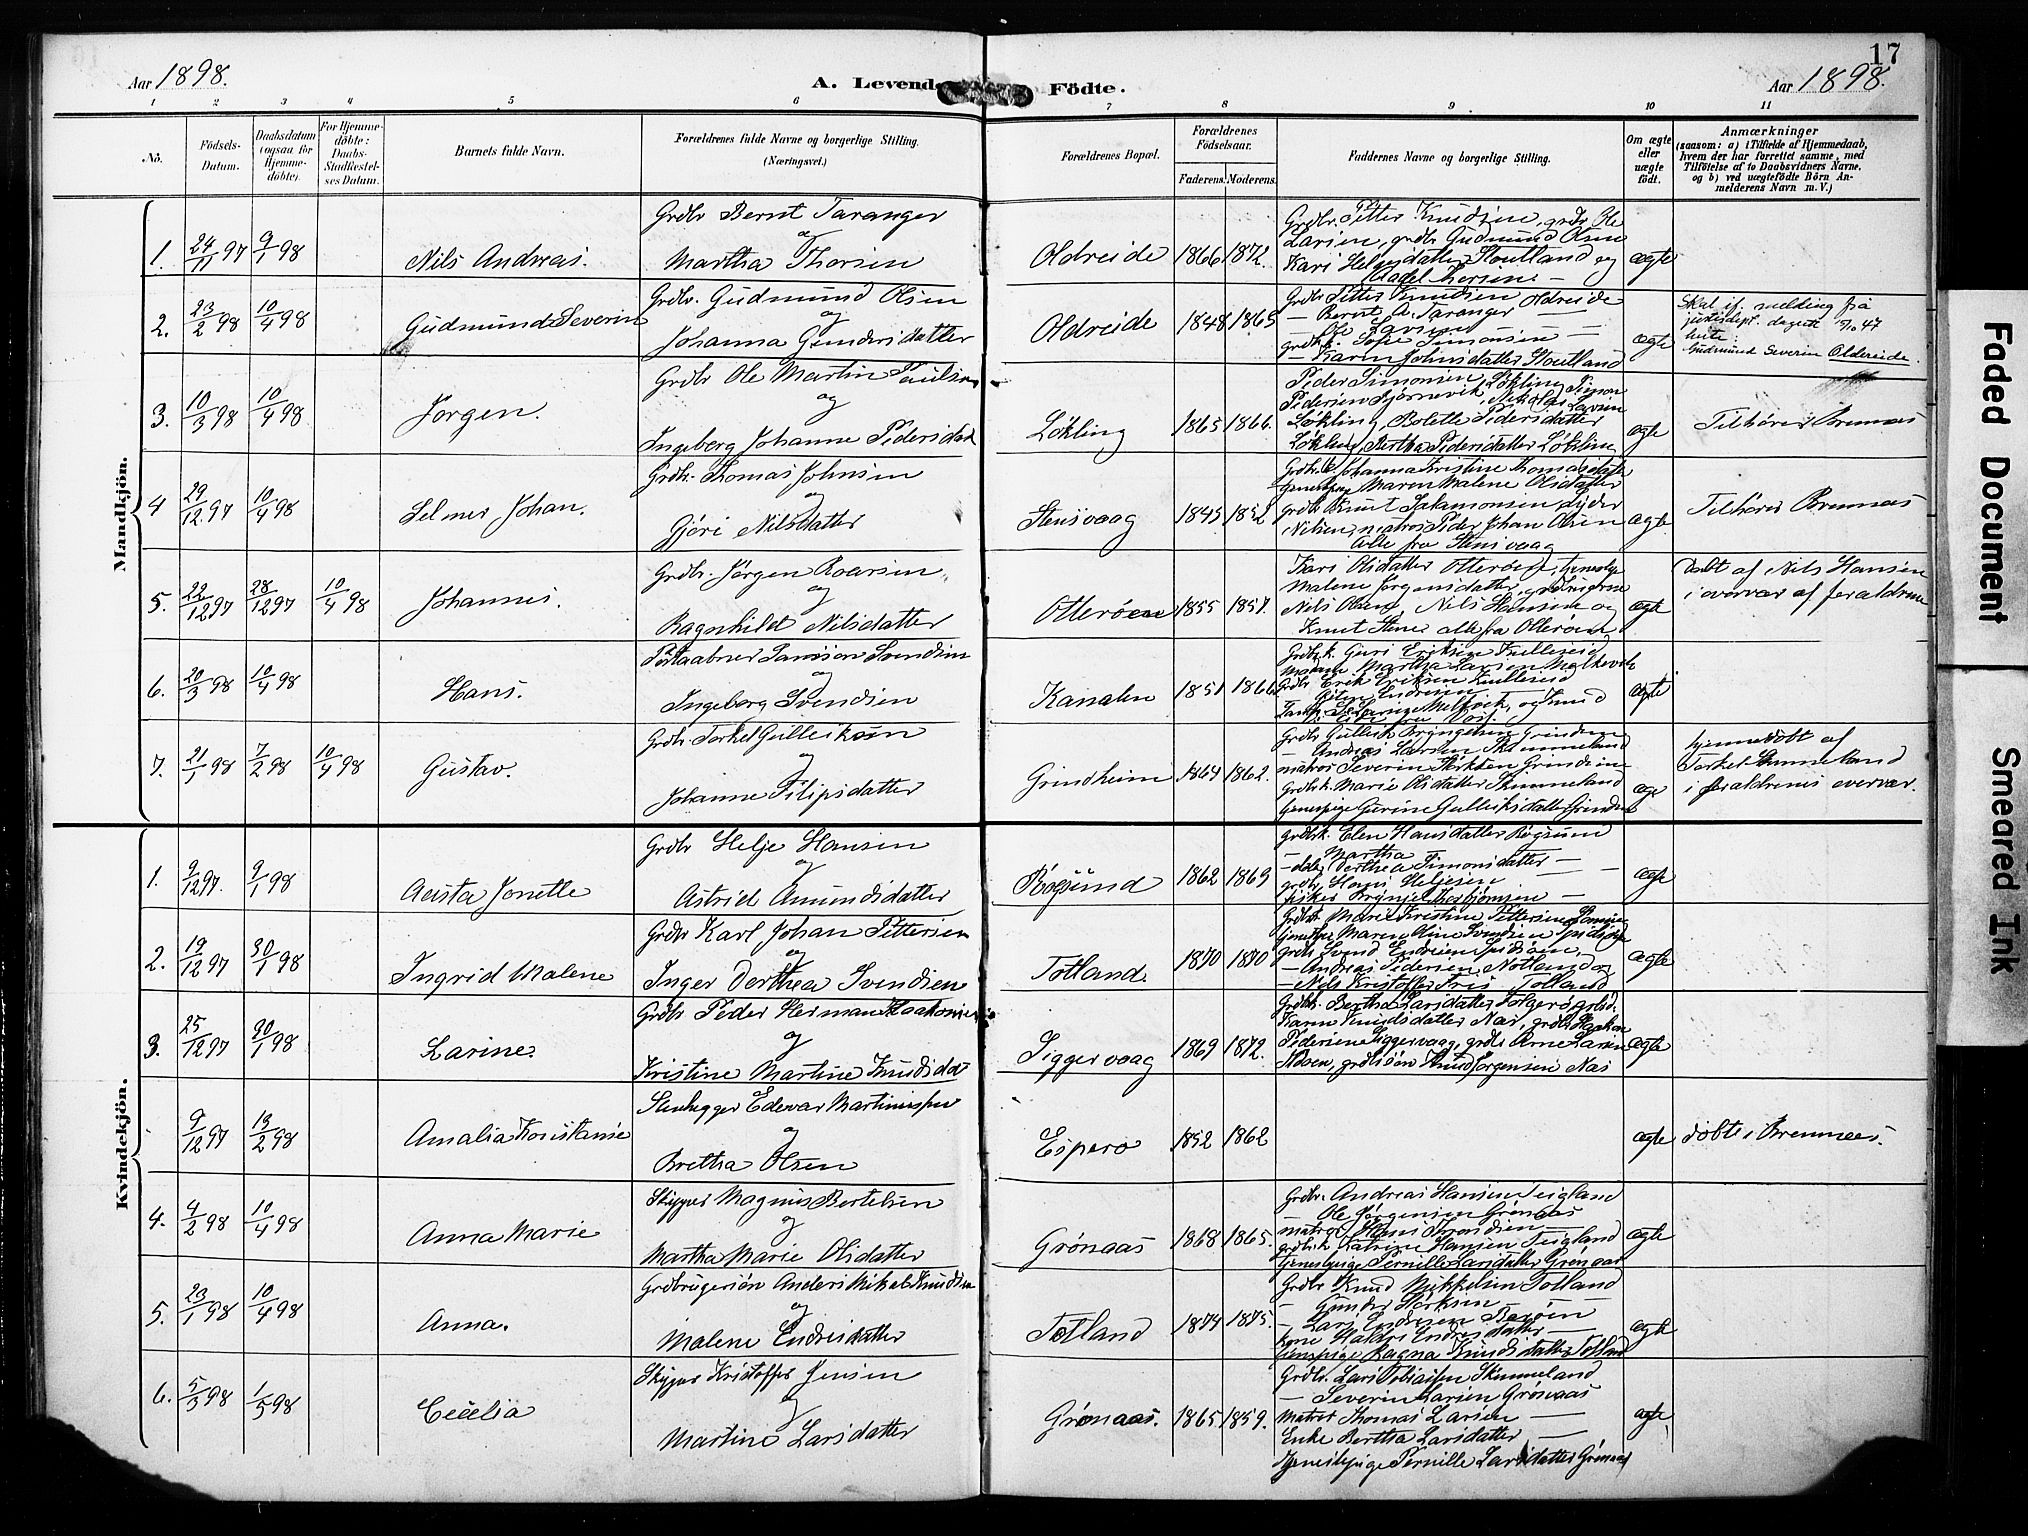 17
Aar 1898.
A. Levende Födte.
Aar 1898.
1 2 3 4 5 6 7 8 9 10 11
No.
Födsels-
Datum.
Daabsdatum
(ogsaa for
Hjemme-
döbte).
For Hjemme-
döbte:
Daabs-
Stadfæstel-
ses Datum.
Barnets fulde Navn.
Forældrenes fulde Navne og borgerlige Stilling.
(Næringsvei.)
Forældrenes Bopæl.
Forældrenes
Födselsaar.
Faderens. Moderens.
Faddernes Navne og borgerlige Stilling.
Om ægte
eller
uægte
födt.
Anmærkninger
(saasom: a) i Tilfælde af Hjemmedaab,
hvem der har forrettet samme, med
Tilföielse af to Daabsvidners Navne,
og b) ved uægtefödte Börn An-
melderens Navn m. V.)
Mandkjön.
1. 24/11 97 9/1 98 Nils Andreas.
Grdbr Bernt Taranger
og
Martha Thorsen
Oldreide 1866 1872.
Grdbr. Petter Knudsen, grdbr Ole
Larsen, grdbr Gudmund Olsen
Kari Helgesdatter Stoutland og
ægte
2. 23/2 98 10/4 98 Gudmund Severin
Grdbr. Gudmund Olsen
og
Johanna Gundersdatter
Oldreide 1848 1865
Grdbr Petter Knudsen Oldreide
— Bernt A. Taranger —
— Ole Larsen —
grdbk. Sofie Simonsen —
— Karen Johnsdatter Stoutland
ægte
Skal if. melding frå
justisdept. dagsett 5/10 47
heite:
Gudmund Severin Oldereide
3. 10/3 98 10/4 98 Jørgen.
Grdbr Ole Martin Paulsen
og
Ingeborg Johanne Pedersdat
Løkling 1865 1866.
Peder Simonsen Løkling, Simon
Pedersen Bjørnevik, Nikolai Larsen
Løkling, Bolette Pedersdatter
Løkling, Bertha Pedersdatter Løkling
ægte
Tilhører Bremnæs
4 29/12 97 10/4 98 Selmer Johan.
Grdbr. Thomas Johnsen
og
Gjøri Nilsdatter
Stensvaag 1845 1852
Grdbr. Johanna Kristine Thomasdatter
tjenestepige Maren Malene Olsdatter
grdbr Knut Salamonsen, Lyder
Nilsen, matros Peder Johan Olsen
Alle fra Stensvaag
ægte.
Tilhører Bremnæs
5. 22/12 97 28/12 97 10/4 98 Johannes.
Grdbr. Jørgen Roarsen
og
Ragnhild Nilsdatter
Otterøen 1855 1857.
Kari Olsdatter Otterøen, tjenestpge
Malene Jørgensdatter,
Nils Olsen, Nils Hansen og
Knut Stene alle fra Otterøen
ægte
Døbt af Nils Hansen
i overvær af forældrene
6. 20/3 98 10/4 98 Hans.
Postaabner Samson Svendsen
og
Ingeborg Svendsen
Kanalen 1851 1866
Grdbk. Guri Eriksen Kulleseid
Madame Martha Larsen Mælkevik
Grdbr Erik Eriksen Kulleseid
Sten Endresen
ægte
7. 21/1 98 7/2 98 10/4 98 Gustav.
Grdbr. Torkel Gulleiksen
og
Johanne Filipsdatter
Grindheim 1864 1862.
Grdbr Gulleik Bryngelsen Grindheim
— Andreas Larsen Skimmeland
matros Severin Størksen Grindheim
Grdbk. Marie Olsdatter Skimmeland
tjenestpige Gurine Gulleiksdatter Grindheim
ægte
hjemmedøbt af
Torkel Skimmeland
i forældrenes overvær.
Kvindekjön.
1. 9/12 97. 9/1 98 Agusta Jonette
Grdbr Helje Hansen
og
Astrid Amundsdatter
Røgsund 1862 1869
grdbk. Elen Hansdatter Røgsund
— Martha — —
— Dorthea Simonsdatter — —
grdbr. Hans Heljesen
fisker Brynjel Thorbjørnsen —
ægte
2. 19/12 97 30/1 98 Ingrid Malene
Grdbr Karl Johan Pettersen
og
Inger Dorthea Svendsen
Totland. 1870 1870
Grdbk Marie Kristine Pettersen
Maren Oline Svendsen
grdbr Svend Endresen
— Andreas Pedersen, Notland og
— Nils Kristoffer Friis Totland
ægte
3. 25/12 97 30/1 98 Larine.
Grdbr Peder Herman Haakonsen
og
Kristine Martine Knudsdat
Siggervaag 1869 1872.
Grdbk. Bertha Larsdatter Folgerø,
Karen Knudsdatter Næs, grdbr Haakon
Pedersen Siggervaag, grdbr Arne Larsen
grdbrsøn Knud Jørgensen Næs
ægte
9/12 97 13/2 98 Amalia Konstanse
Stenhugger Edevar Martinussen
og
Brethа Olsen
Esperø 1852 1862
ægte døbt i Bremnæs.
4. 4/2 98 10/4 98 Anna Marie
Skipper Magnus Bertelsen
og
Martha Marie Olsdatter
Grønaas 1868 1865.
Grdbr. Andreas Hansen Teigland
— Ole Jørgensen Grønaas
matros Hans Thorsdsen —
grdbk Katrine Hansen Teigland
tjenestpige Pernille Larsdatter Grønaas
ægte
5. 23/1 98 10/4 98 Anna.
Grdbrugersøn Anders Mikal Knudsen
og
Malene Endresdatter
Totland 1874 1875.
Grdbr Knud Mikkelsen Totland
— Gunder Størksen —
— Lars Endresen
kone Haldis Endresdatter —
tjenstpige Ragna Knudsdatter Totland
ægte
6. 5/3 98 1/5 98 Cecelia
Skipper Kristoffer Jensen
og
Martine Larsdatter
Grønaas. 1865 1859.
Grdbr. Lars Tobiassen Skimmeland
— Severin Larsen Grønaas
Matros Thomas Larsen —
Enke Bertha Larsdatter —
tjenestepige Pernille Larsdatter Grønaas
ægte
Faded Document
Smeared Ink